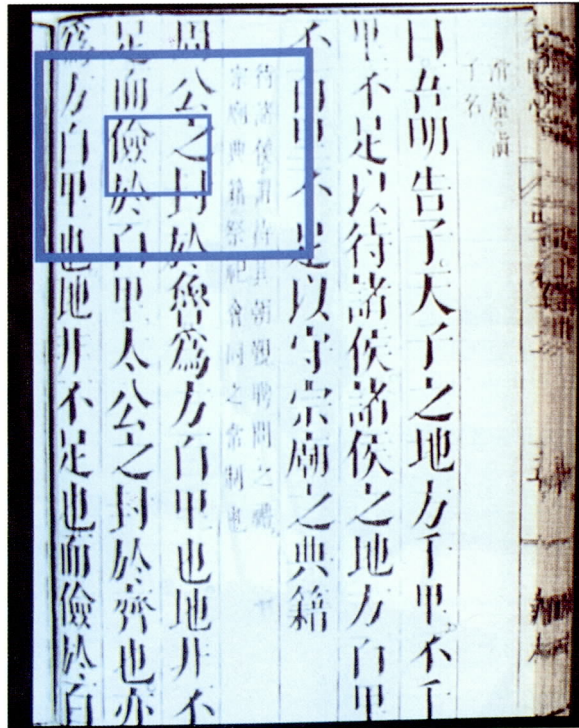 滑釐慎
子名
曰吾明告子天子之地方千里不千
里不足以待諸侯諸侯之地方百里
不百里不足以守宗廟之典籍
待諸侯謂待其朝覲聘問之禮
宗廟典籍祭祀會同之常制也
周公之封於魯爲方百里也地非不
足而儉於百里太公之封於齊也亦
爲方百里也地非不足也而儉於百